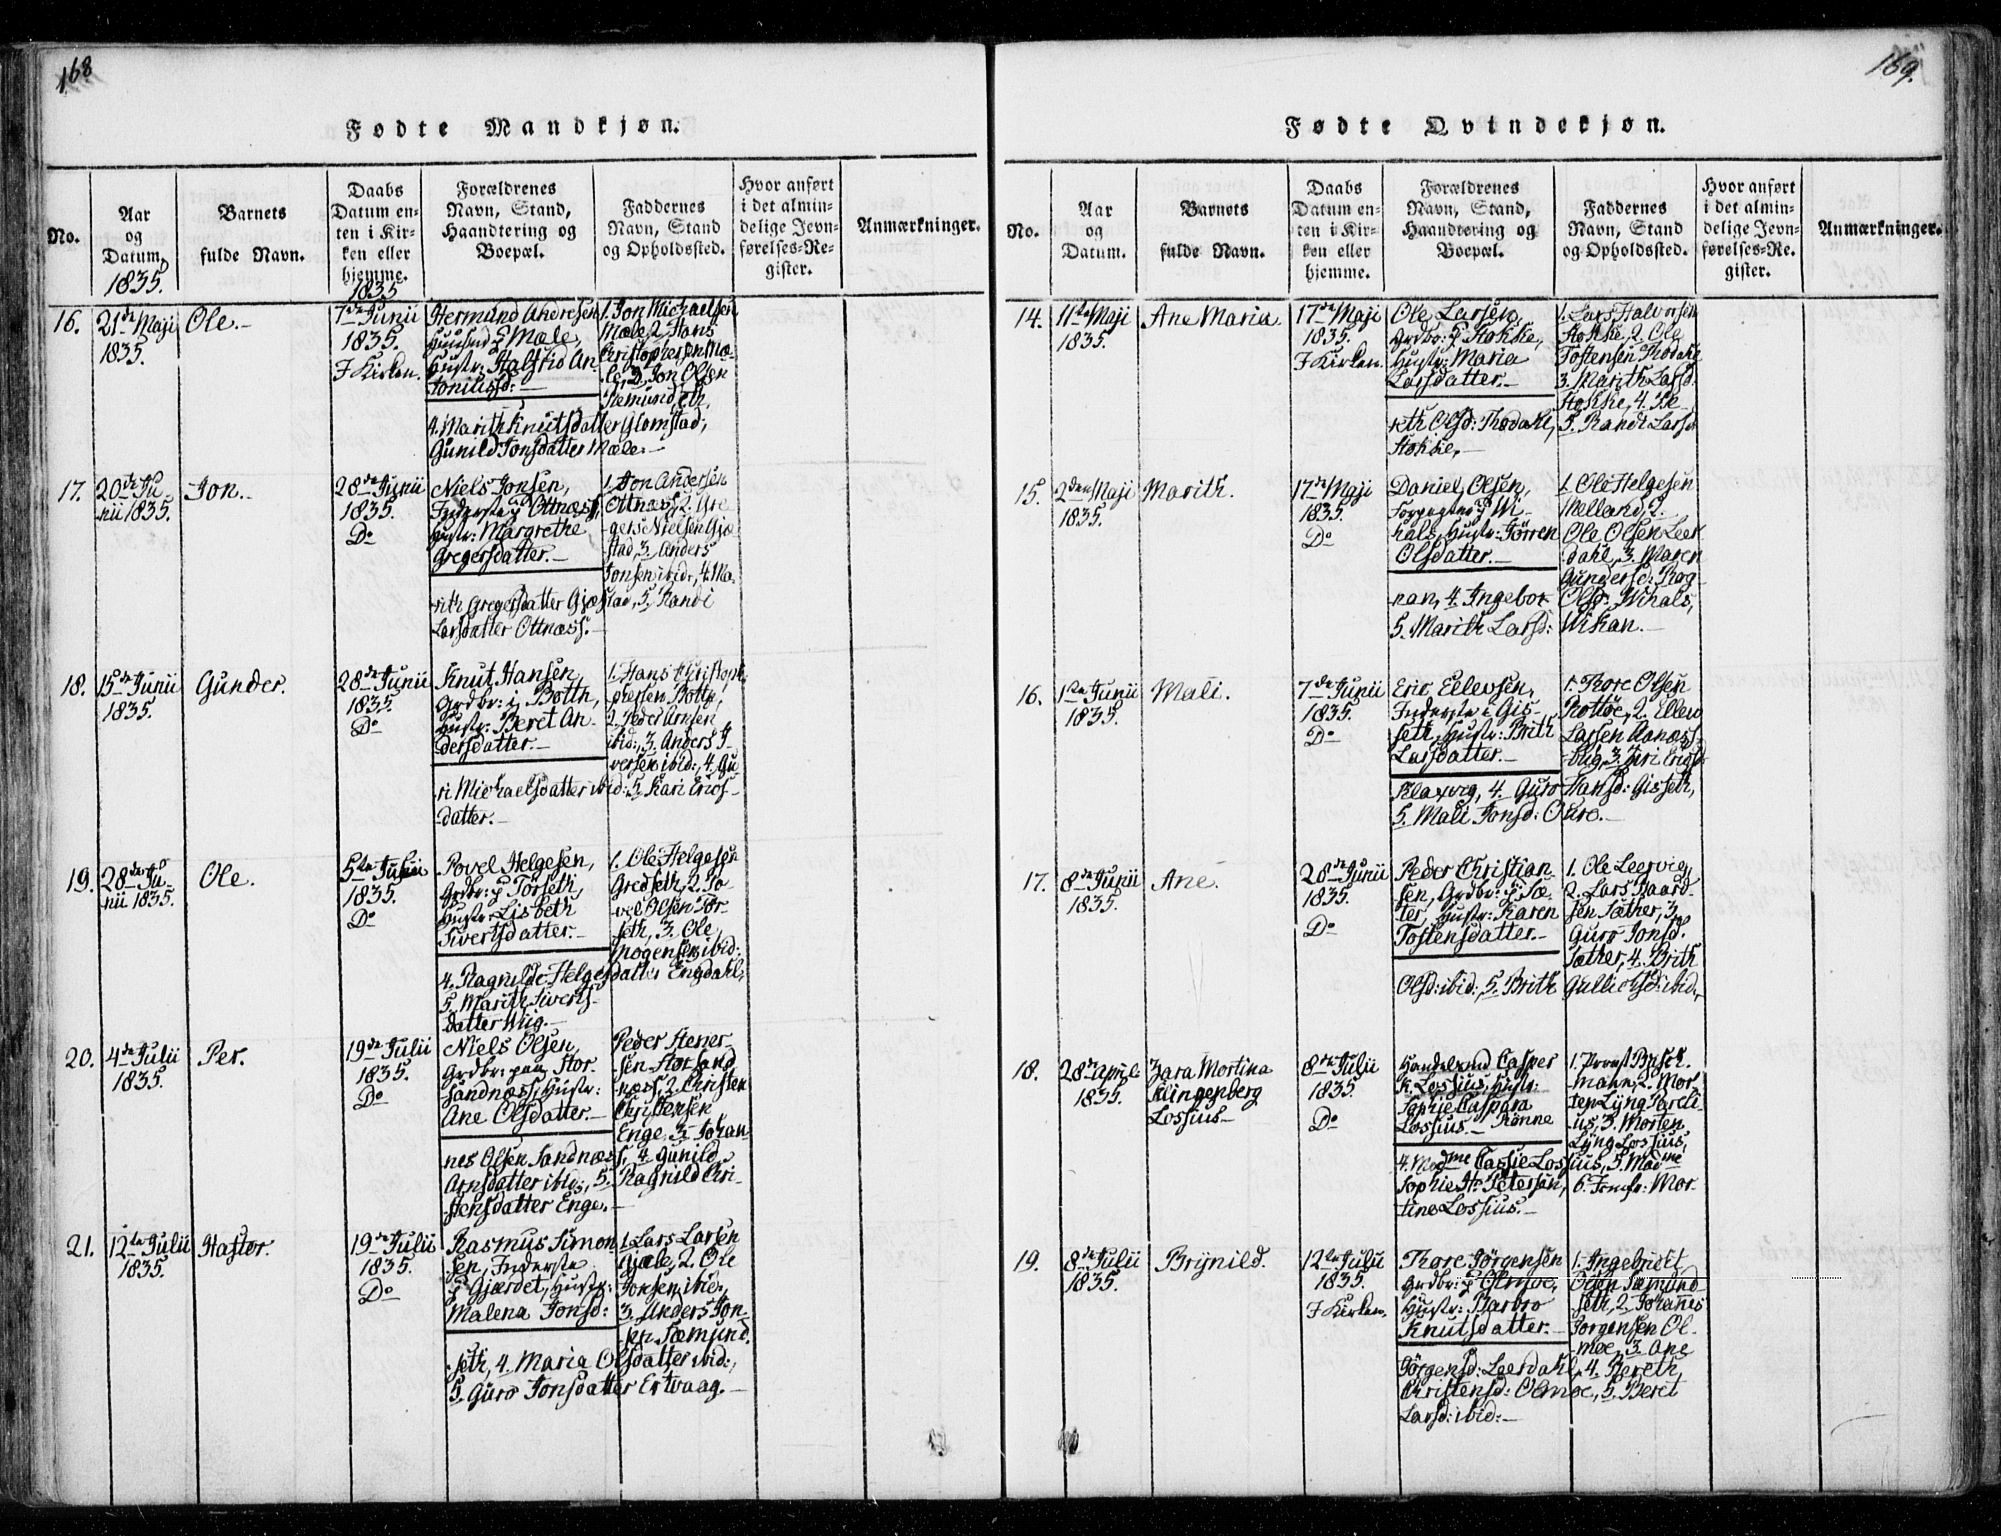 168
Fødte Mandkjøn.
No.
Aar
og
Datum.
1835.
Barnets
fulde Navn.
Daabs
Datum en-
ten i Kir-
ken eller
hjemme.
1835
Forældrenes
Navn, Stand,
Haandtering og
Boepæl.
Faddernes
Navn, Stand
og Opholdssted.
Hvor anført
i det almin-
delige Jevn-
førelses-Re-
gister.
Anmærkninger.
16.
21de Maji
1835.
Ole.
7de Junii
1835.
I Kirken.
Hermund Andresen
Huusmd p Mæle,
Hustr: Halstid An-
toniussd:
1. Jon Michaelsen
Mæle, 2. Hans
Christophersen Mæ-
le, 3. Jon Olsen
Sæmundseth,
4. Marith Knutsdatter Glomstad,
Gunild Jonsdatter Mæle.
17.
20de Ju-
nii 1835.
Jon.
28de Junii
1835.
Do
Niels Jonsen,
Inderste p Ottnæss,
Hustr: Margrethe
Gregersdatter.
1. Jon Andersen
Ottnæss, 2. Gre-
gerse Nielsen Gjæ-
stad, 3. Anders
Jonsen ibid:, 4. Ma-
rith Gregersdatter Gjæstad, 5. Randi
Larsdatter Ottnæss.
18.
15de Junii
1835.
Gunder.
28de Junii
1835
Do
Knut Hansen,
Grdbr: i Botth,
Hustr: Beret An-
dersdatter.
1. Hans Christoph-
phersen Botth,
2. Peder Arnsen
ibid:, 3. Anders I-
versen ibid:, 4. Gu-
ri Michaelsdatter ibid: 5. Kari Erics-
datter.
19.
28de Ju-
nii 1835.
Ole.
5te Julii
1835.
Do
Povel Helgesen,
Grdbr: p Törseth,
Hustr: Lisbeth
Sivertsdatter.
1. Ole Helgesen
Gredseth, 2. Po-
vel Olsen Tör-
seth, 3. Ole
Mogensen ibid:
4. Ragnilde Helgesdatter Engdahl,
5. Marith Siverts-
datter Wiig.
20.
4de Julii
1835.
Per.
19de Julii
1835.
Do
Niels Olsen,
Grdbr: paa Stor-
sandnæss, Hustr:
Ane Olsdatter.
Peder Stener-
sen Storsand
næss, 2. Christen
Christensen
Enge, 3. Johan-
nes Olsen Sandnæss, 4. Gunild
Arnsdatter ibid:, 5. Ragnild Cri-
stensdatter Enge.
21.
12te Julii
1835.
Hastor.
19de Julii
1835.
Do
Rasmus Simon
sen, Inderste
p Gjærdet, Hustr:
Malena Jonsd:
1. Lars Larsen
Gjæle, 2. Ole
Jonsen ibid:
3. Anders Jon-
sen Sæmund-
seth, 4. Maria Olsdatter ibid:,
5. Guro Jonsdatter Ertvaag.
169.
Fødte Qvindekjøn.
No.
Aar
og
Datum.
Barnets
fulde Navn.
Daabs
Datum en-
ten i Kir-
ken eller
hjemme.
Forældrenes
Navn, Stand,
Haandtering og
Boepæl.
Faddernes
Navn, Stand
og Opholdssted.
Hvor anført
i det almin-
delige Jevn-
førelses-Re-
gister.
Anmærkninger.
14.
11te Maji
1835.
Ane Maria.
17de Maji
1835.
I Kirken.
Ole Larsen,
Grdbr: p Stokke,
Hustr: Maria
Larsdatter.
1. Lars Halvorsen
Stokke, 2. Ole
Tostensen Thodahl,
3. Marith Larsd.
Stokke, 4. Be-
reth Olsd: Thodahl, 5. Randi Larsd
Stokke.
15.
2den Maji
1835.
Marith.
17de Maji
1835.
Do
Daniel Olsen,
Forpagter p Wi-
hals, Hustr: Jörren
Olsdatter.
1. Ole Helgesen
Melland, 2.
Ole Olsen Leer
dahl, 3. Maren
Gundersd: Rog-
nan, 4. Ingebor Olsd: Wihals,
5. Marith Larsd: Wikan.
16.
1ste Junii
1835.
Mali.
7de Junii
1835.
Do
Eric Ellevsen,
Inderste i Gis-
seth, Hustr: Brith
Larsdatter.
1. Thore Olsen
Rottøe, 2. Ellev
Larsen Aanæss-
bug, 3. Juri Ericsd.
Klaxvig, 4. Guro Hansd: Gisseth,
5. Mali Jonsd: Oure.
17.
8de Junii
1835.
Ane.
28de Junii
1835.
Do
Peder Christian-
sen, Grdbr: p Sæ-
ter, Hustr: Karen
Tostensdatter.
1. Ole Leervig,
2. Lars Baard-
sen Sæther, 3.
Guro Jonsd.
Sæther, 4. Brith
Olsd: ibid:, 5. Brith Gulliolsd: ibid:,
18.
28de April
1835.
Zara Mortina
Klingenberg
Lossius
8de Julii
1835.
Do
Handelsmd Casper
K. Lossius, Hustr:
Sophie Caspara
Lossius. Rönne
1. Provst Busch-
mann, 2. Mor-
ten Lÿng Pareli-
us, 3. Morten
Lÿng Lossius,
4. Madme Cassie Lossius, 5. Madme
Sophie H. Petersen, 6. Jomfr: Mor-
tine Lossius.
19.
8de Julii
1835.
Brÿnild.
12te Julii
1835.
I Kirken.
Thore Jörgensen
Grdbr: p Olmoe,
Hustr: Barbro
Knutsdatter.
1. Ingebrict
Sæmund-
seth, 2. Johannes
Jorgensen Ol-
moe, 3. Ane
Jörgensd: Leerdahl, 4. Bereth
Christensd: Olmoe, 5. Beret
Larsd: ibid: